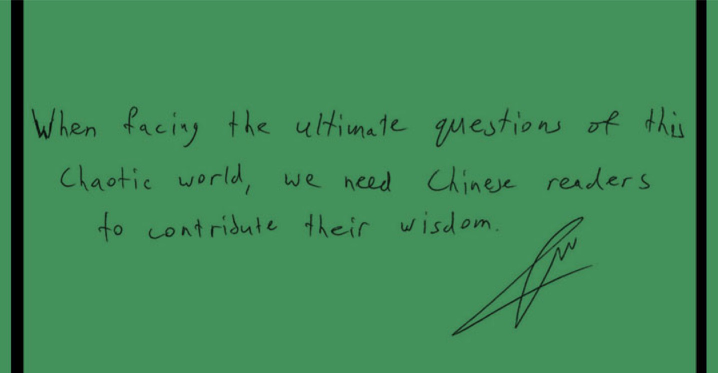 When facing the ultimate questions of this
Chaotic world, we need Chinese readers
to contribute their wisdom.